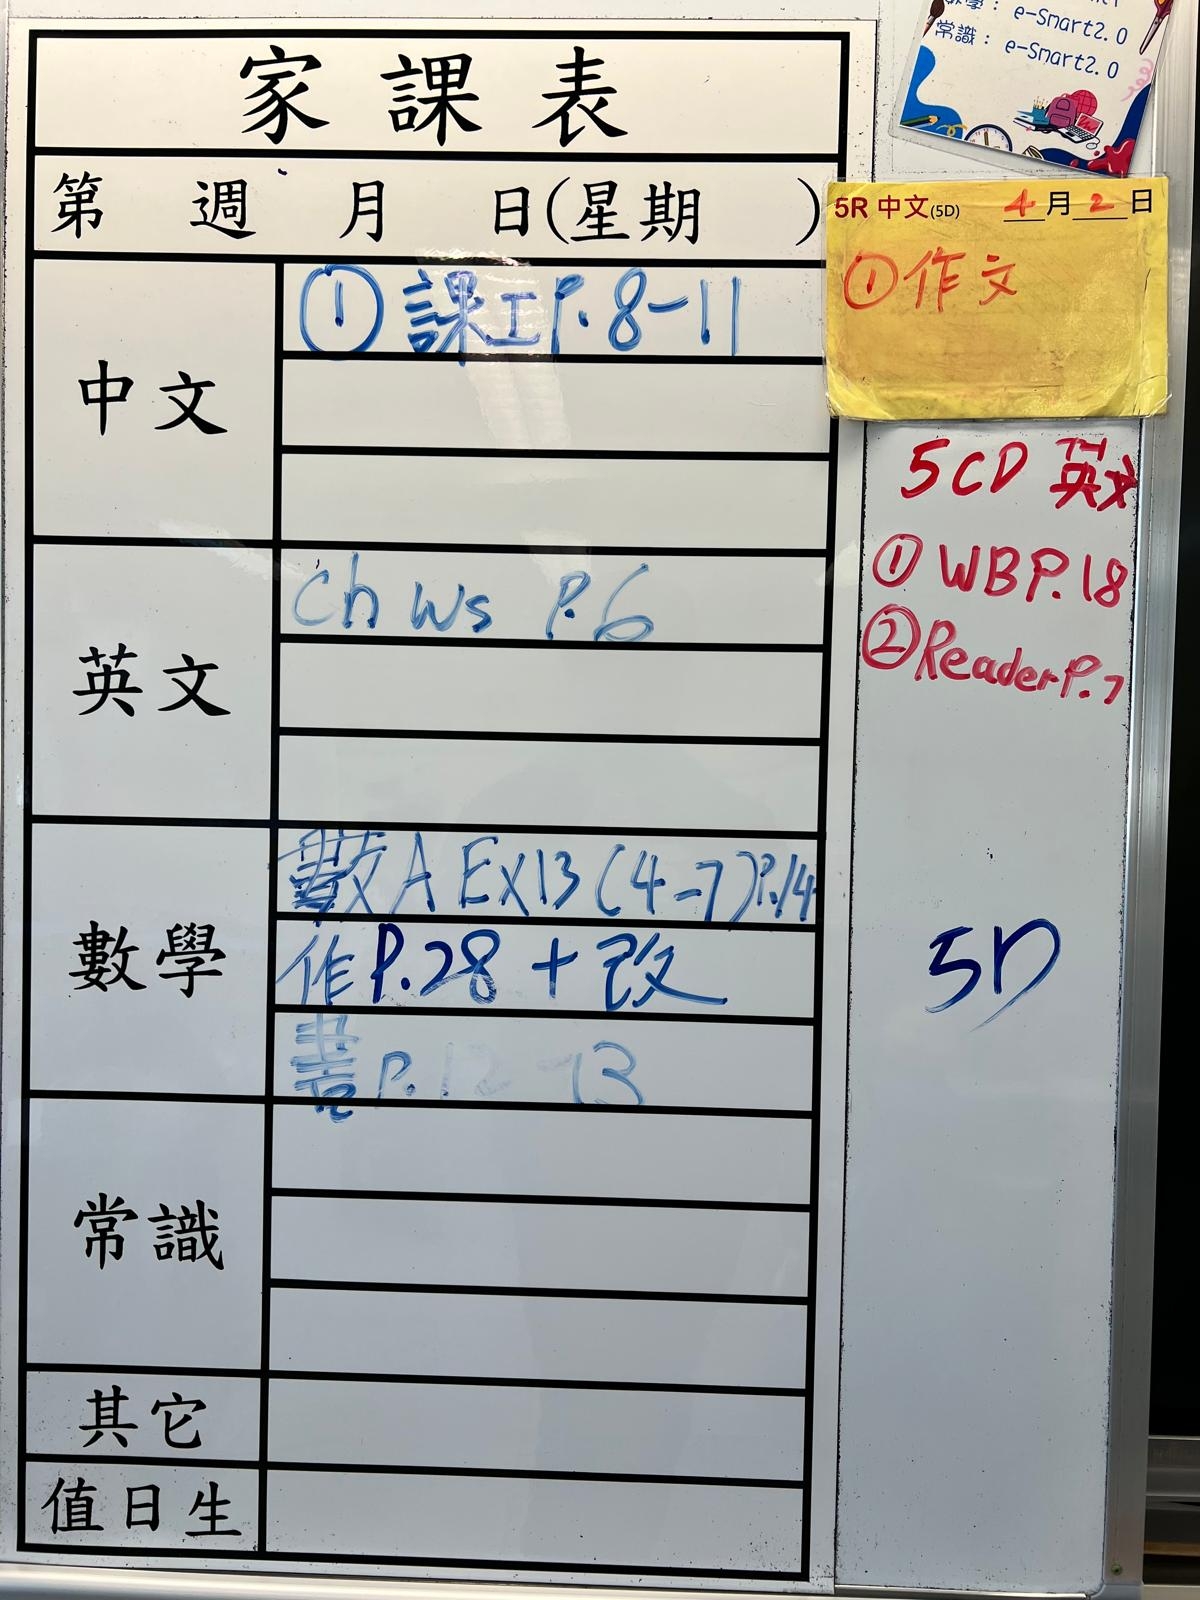 數學：e-Smart2.0
常識：e-Smart2.0
家課表
第 週 月 日(星期 )
5R 中文(5D) 4月2日
①作文
中文
①課工P.8-11
5CD 英文
①WBP.18
②ReaderP.7
英文
Ch Ws P.6
數學
數A Ex13(4-7)P.14
作P.28+改
書P.12-13
5D
常識
其它
值日生